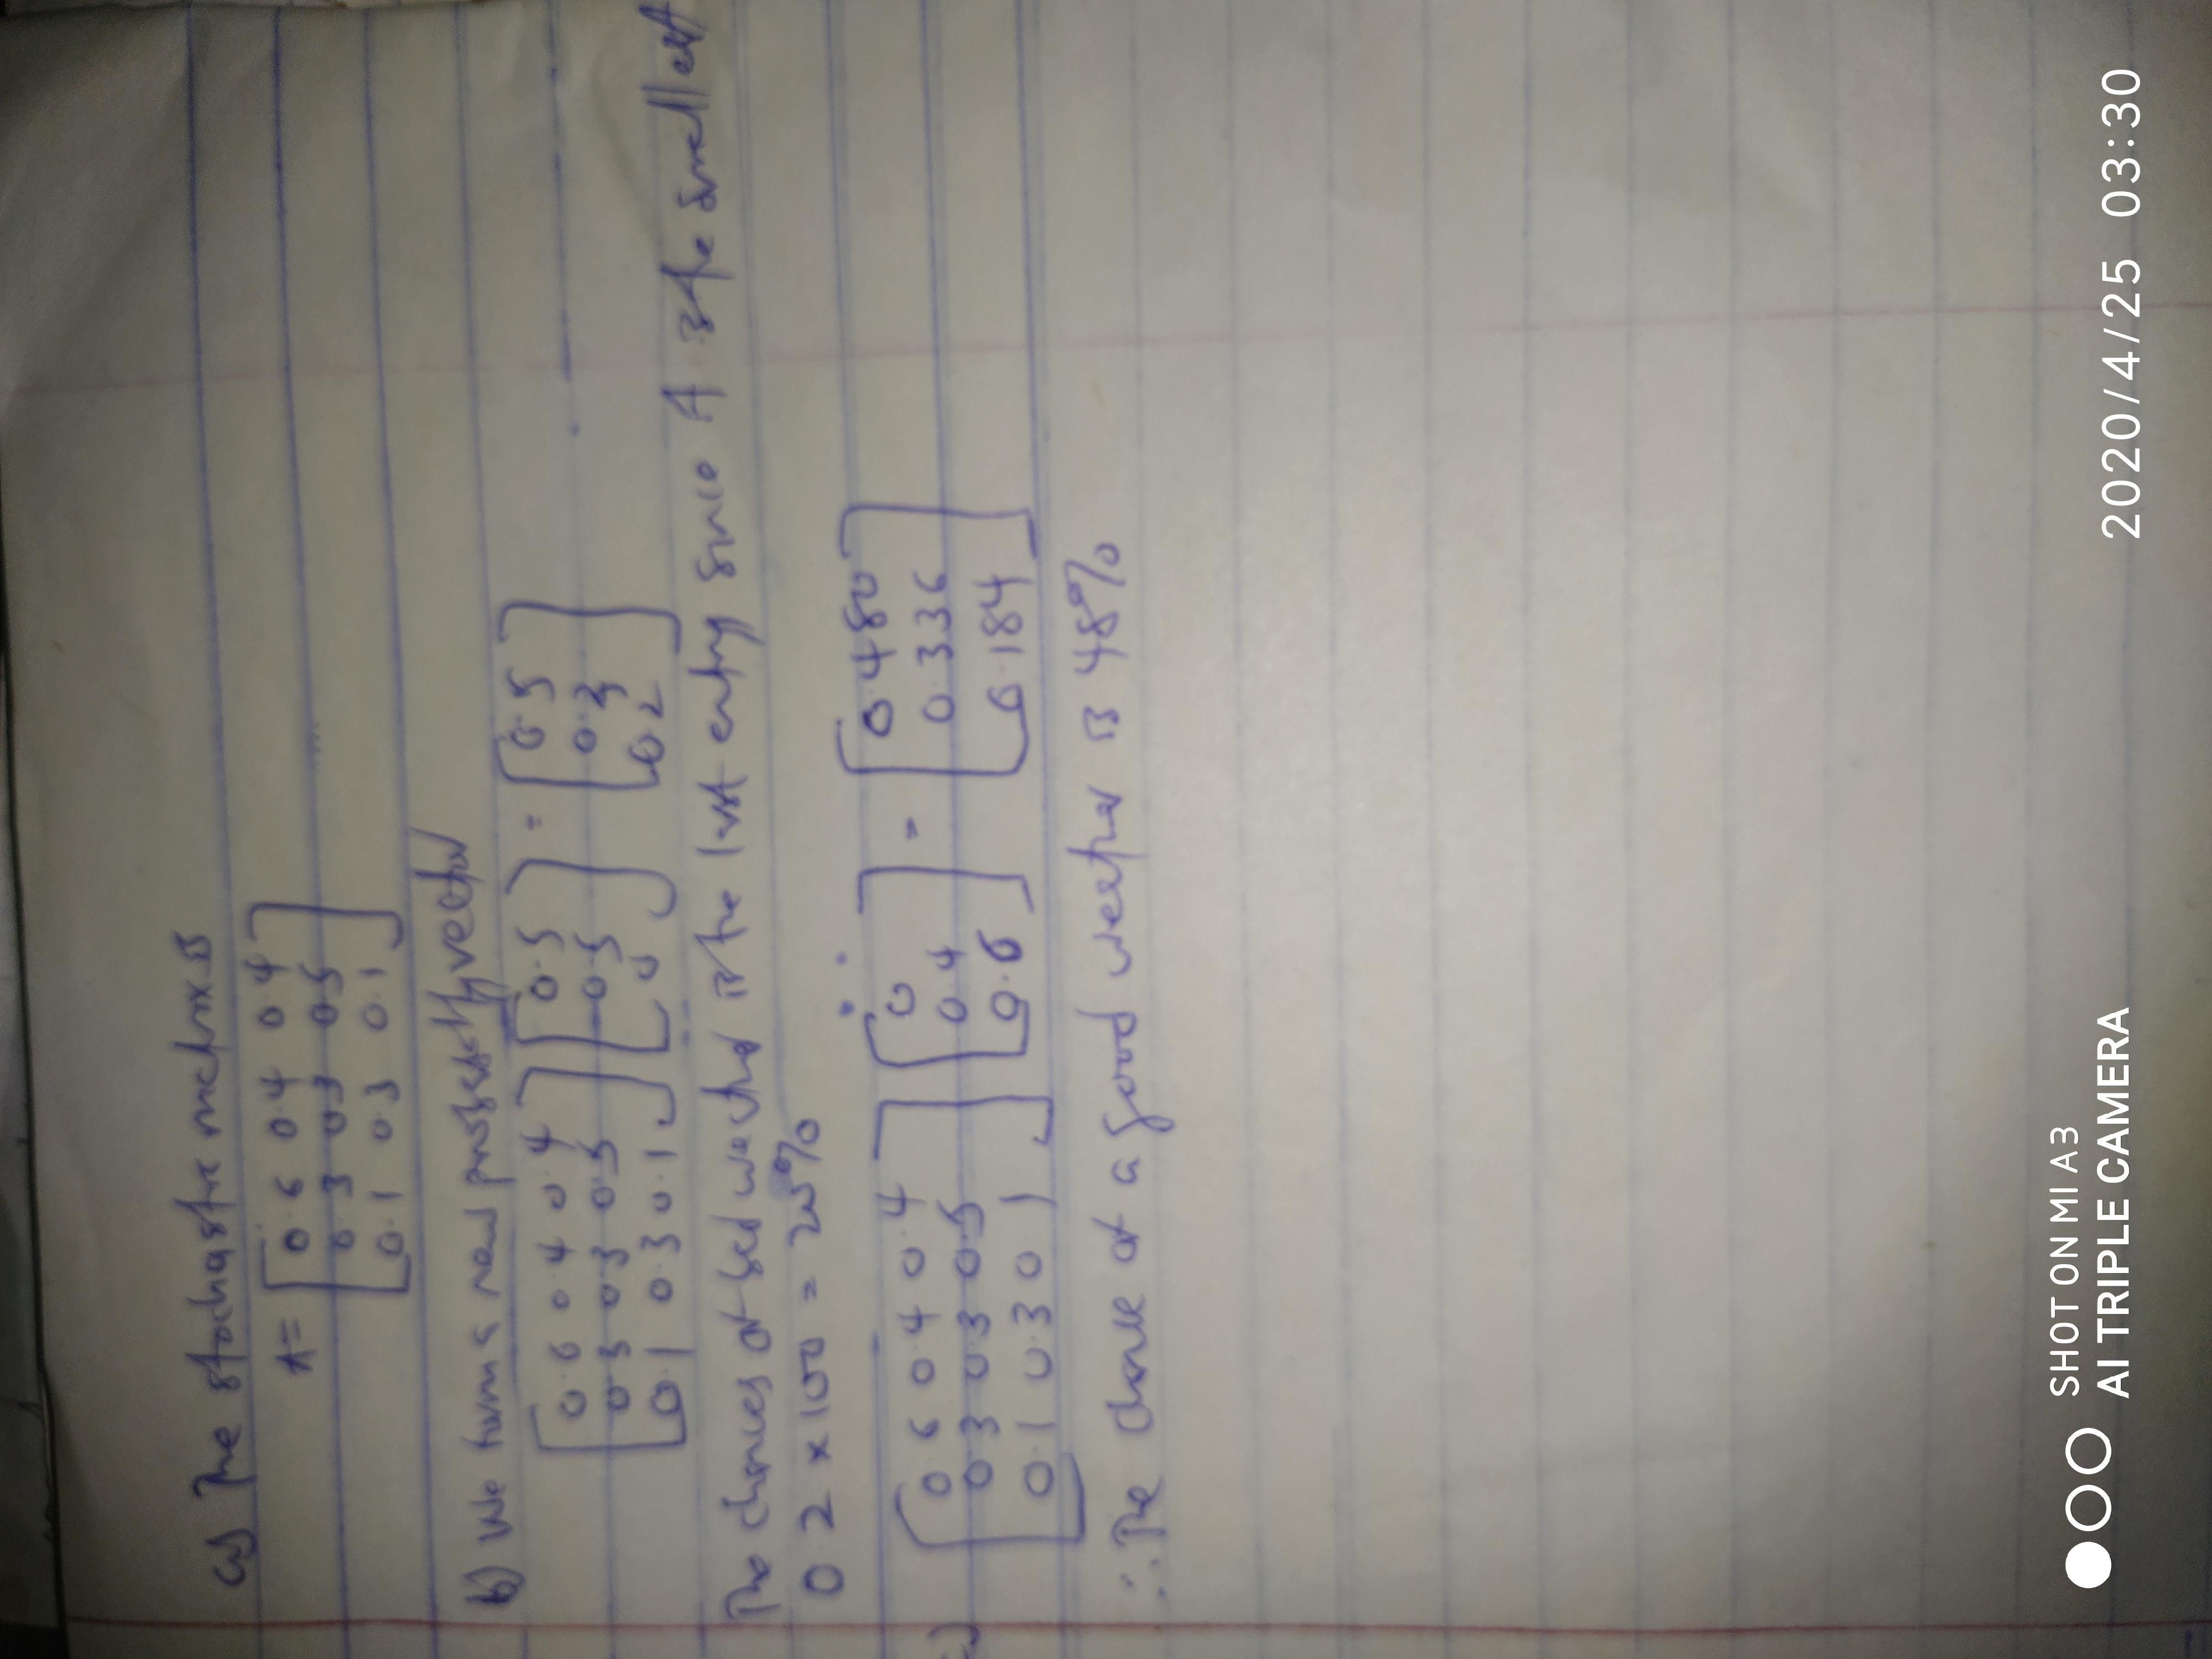 a) The stochastic matrix is
A = [0.6 0.4 0.4
0.3 0.3 0.5
0.1 0.3 0.1]
b) We have a new probability vector
[0.6 0.4 0.4] [0.5] = [0.5]
[0.3 0.3 0.5] [0.5] [0.3]
[0.1 0.3 0.1] [0] [0.2]
The chances of bad weather is the last entry since A is the smallest
0.2 × 100 = 20%
c) [0.6 0.4 0.4] [0] = [0.480]
[0.3 0.3 0.5] [0.4] [0.336]
[0.1 0.3 0.1] [0.6] [0.184]
∴ The chance of a good weather is 48%
SHOT ON MI A3
AI TRIPLE CAMERA
2020/4/25 03:30